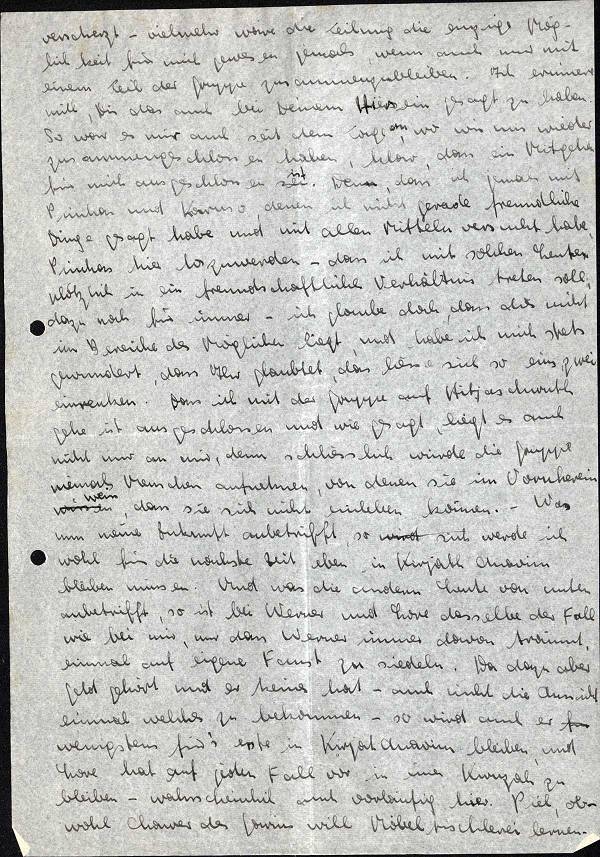 verscherzt – vielmehr wäre die Teilung die einzige Mög-
lichkeit für mich gewesen jemals wenn auch nur mit
einem Teil der Gruppe zusammenzubleiben. Ich erinnere
mich, Dir das auch bei Deinem Hiersein gesagt zu haben.
So war es mir auch seit dem wo wir uns wieder
zusammengeschlossen haben, klar, dass ein Mitgehen
für mich ausgeschlossen ist. Denn, dass ich jemals mit
Pinchas und denen ich nicht gerade freundliche
Dinge gesagt habe und mit allen Mitteln versucht habe,
Pinchas hier loszuwerden – dass ich mit solchen Leuten
plötzlich in ein freundschaftliches Verhältnis treten soll,
dazu noch für immer – ich glaube doch, dass dies nicht
im Bereiche des Möglichen liegt, und habe ich mich stets
gewundert, dass Ihr glaubtet, das liesse sich so eins zwei
einrenken. Dass ich mit der Gruppe auf Hitjaschwuth
gehe ist ausgeschlossen und wie gesagt, liegt es auch
nicht nur an mir, denn schliesslich würde die Gruppe
niemals Menschen aufnehmen, von denen sie im Vornherein
weiss, dass sie sich nicht einleben können. – Was
nun meine Zukunft anbetrifft, so werde ich
wohl für die nächste Zeit eben in Kirjath Anavim
bleiben müssen. Und was die andern Leute von unten
anbetrifft, so ist bei Werner und Lore dasselbe der Fall
wie bei mir, nur dass Werner immer davon träumt,
einmal auf eigene Faust zu siedeln. Da dazu aber
Geld gehört und er keines hat – auch nicht die Aussicht
einmal welches zu bekommen – so wird auch er
wenigstens für's erste in Kirjath Anavim bleiben, und
Lore hat auf jeden Fall vor, in einer Kwuzah zu
bleiben – wahrscheinlich auch vorläufig hier. Piel, ob-
wohl Chawer des will Möbeltischlerei lernen.